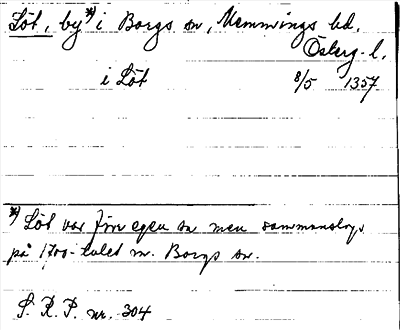 Löt, by *) i Borgs sn, Memmings hd.
Österg. l.
i Löt 8/5 1357
*) Löt var förr egen sn men sammanslogs
på 1700-talet m. Borgs sn.
S. R. P. nr. 304